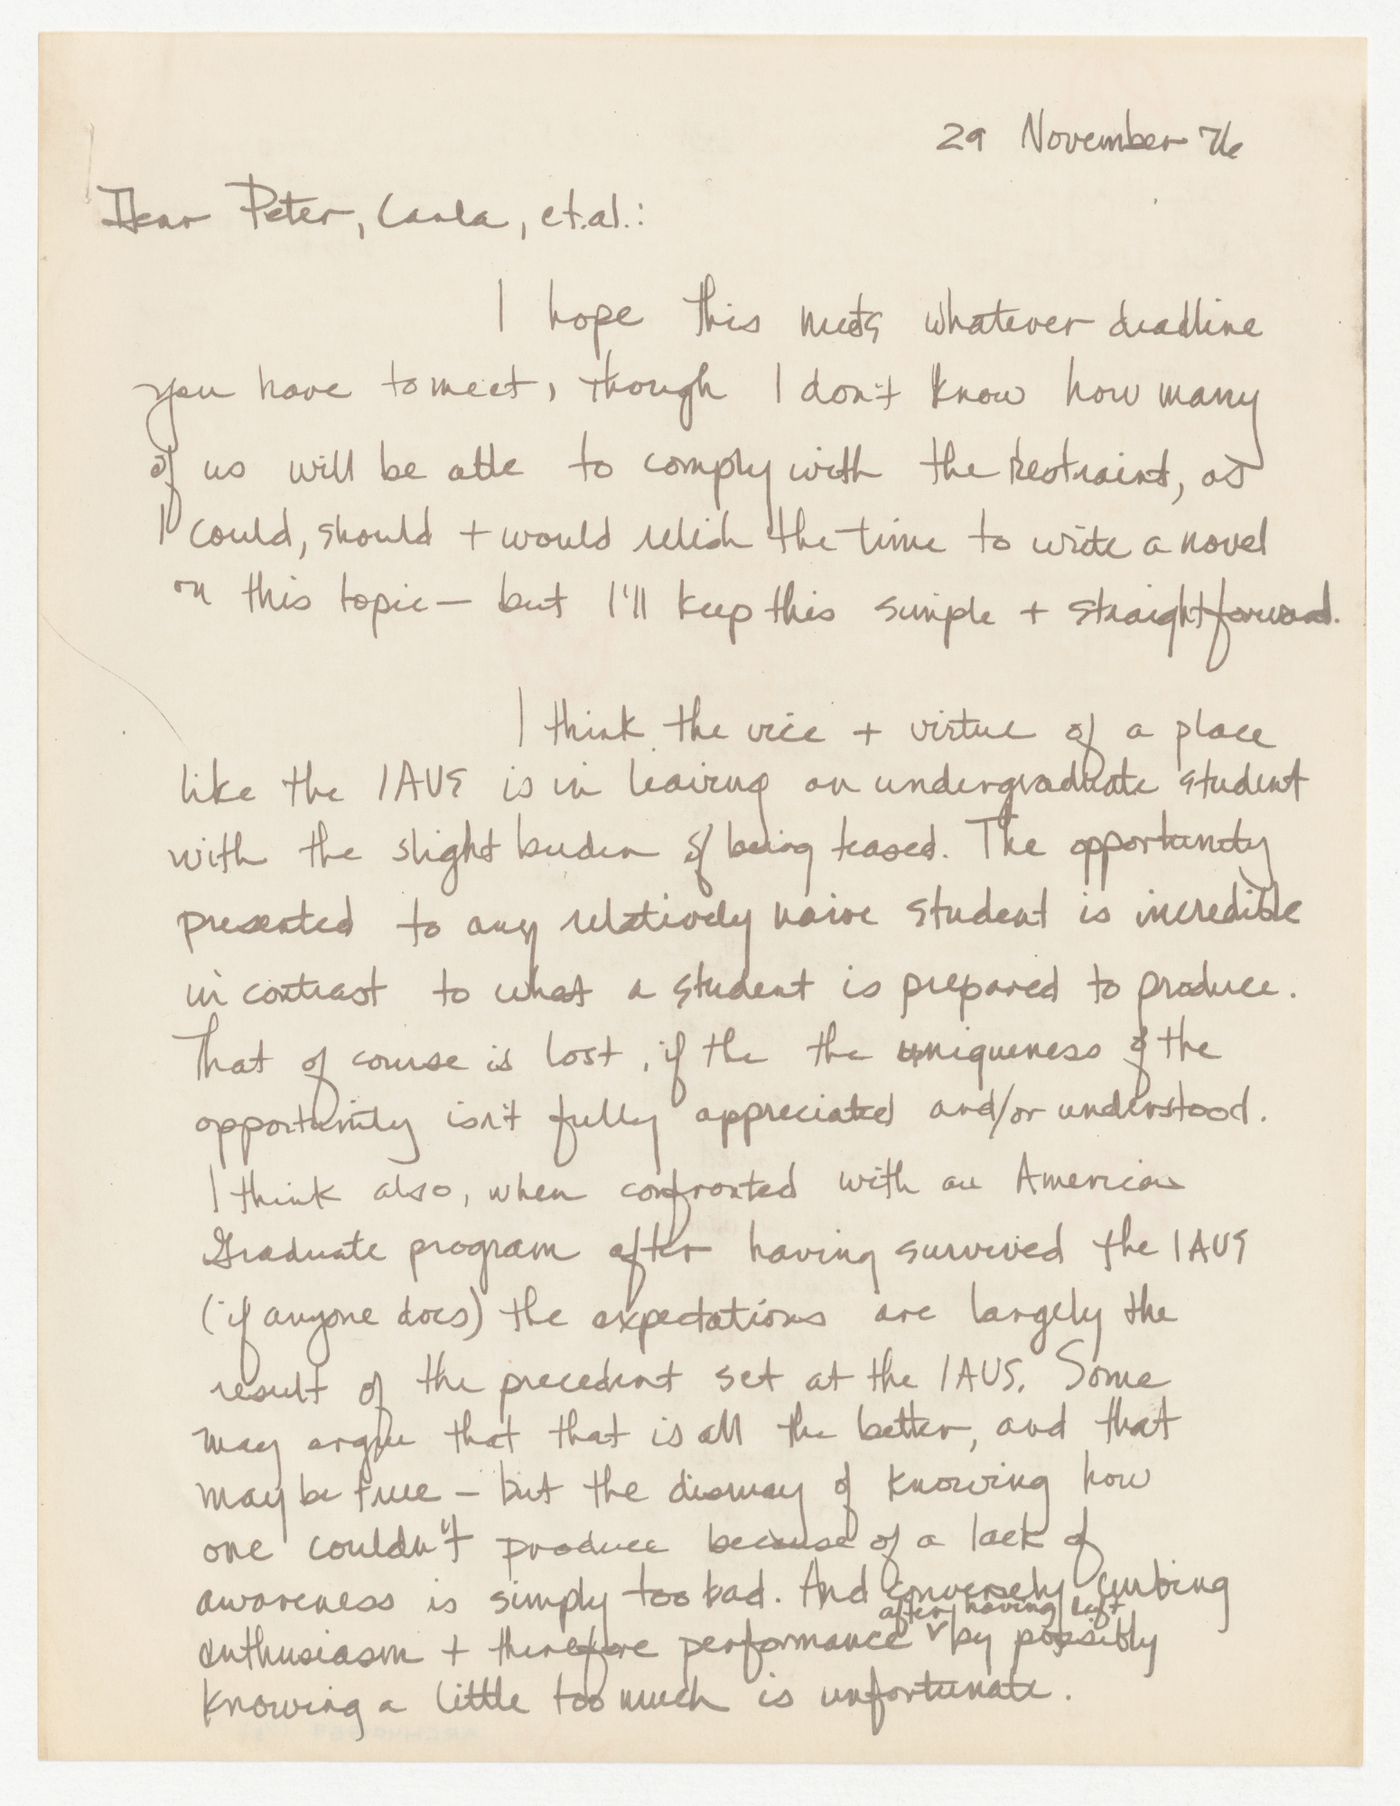 29 November 76
Dear Peter, Carla, et.al.:
I hope this meets whatever deadline
you have to meet, though I don't know how many
of us will be able to comply with the restraint, as
I could, should + would relish the time to write a novel
on this topic — but I'll keep this simple + straightforward.
I think the vice + virtue of a place
like the IAUS is in leaving an undergraduate student
with the slight burden of being teased. The opportunity
presented to any relatively naive student is incredible
in contrast to what a student is prepared to produce.
That of course is lost, if the the uniqueness of the
opportunity isn't fully appreciated and/or understood.
I think also, when confronted with an American
Graduate program after having survived the IAUS
(if anyone does) the expectations are largely the
result of the precedent set at the IAUS. Some
may argue that that is all the better, and that
may be true — but the dismay of knowing how
one couldn't produce because of a lack of
awareness is simply too bad. And conversely curbing
enthusiasm + therefore performance after having left by possibly
knowing a little too much is unfortunate.